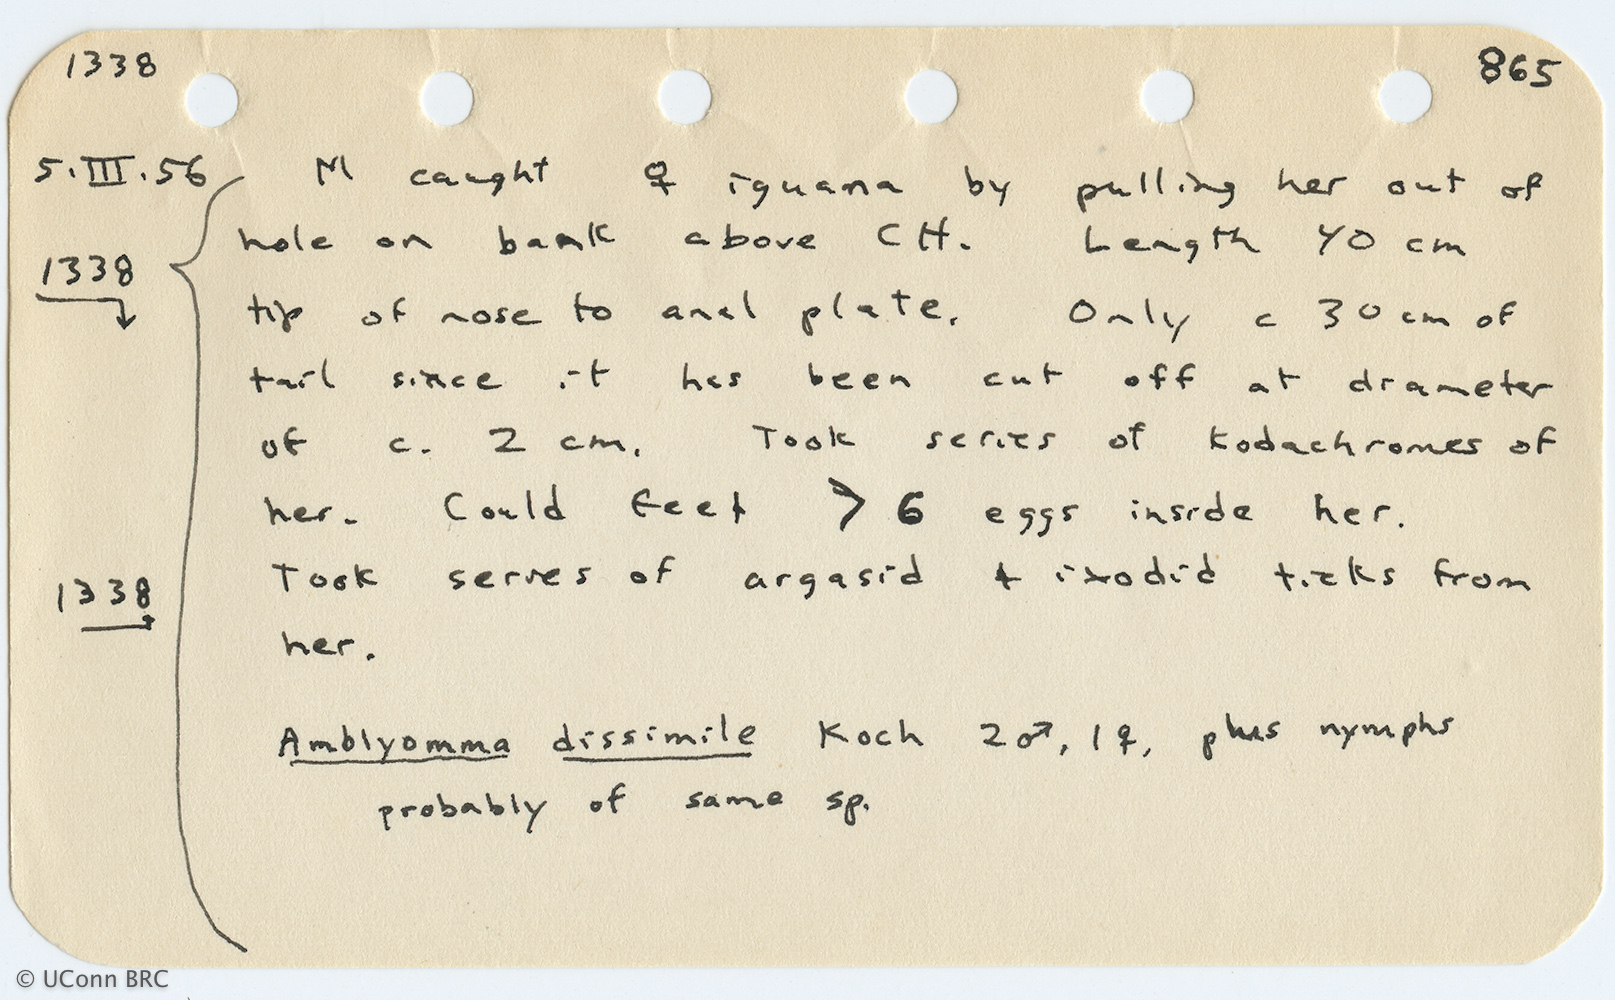 1338 865
5.III.56 M caught ♀ iguana by pulling her out of
hole on bank above CH. Length 40 cm
1338
tip of nose to anal plate. Only c 30 cm of
tail since it has been cut off at diameter
of c. 2 cm. Took series of Kodachromes of
her. Could feel > 6 eggs inside her.
Took series of argasid & ixodid ticks from
1338
her.
Amblyomma dissimile Koch 2♂, 1♀, plus nymphs
probably of same sp.
© UConn BRC